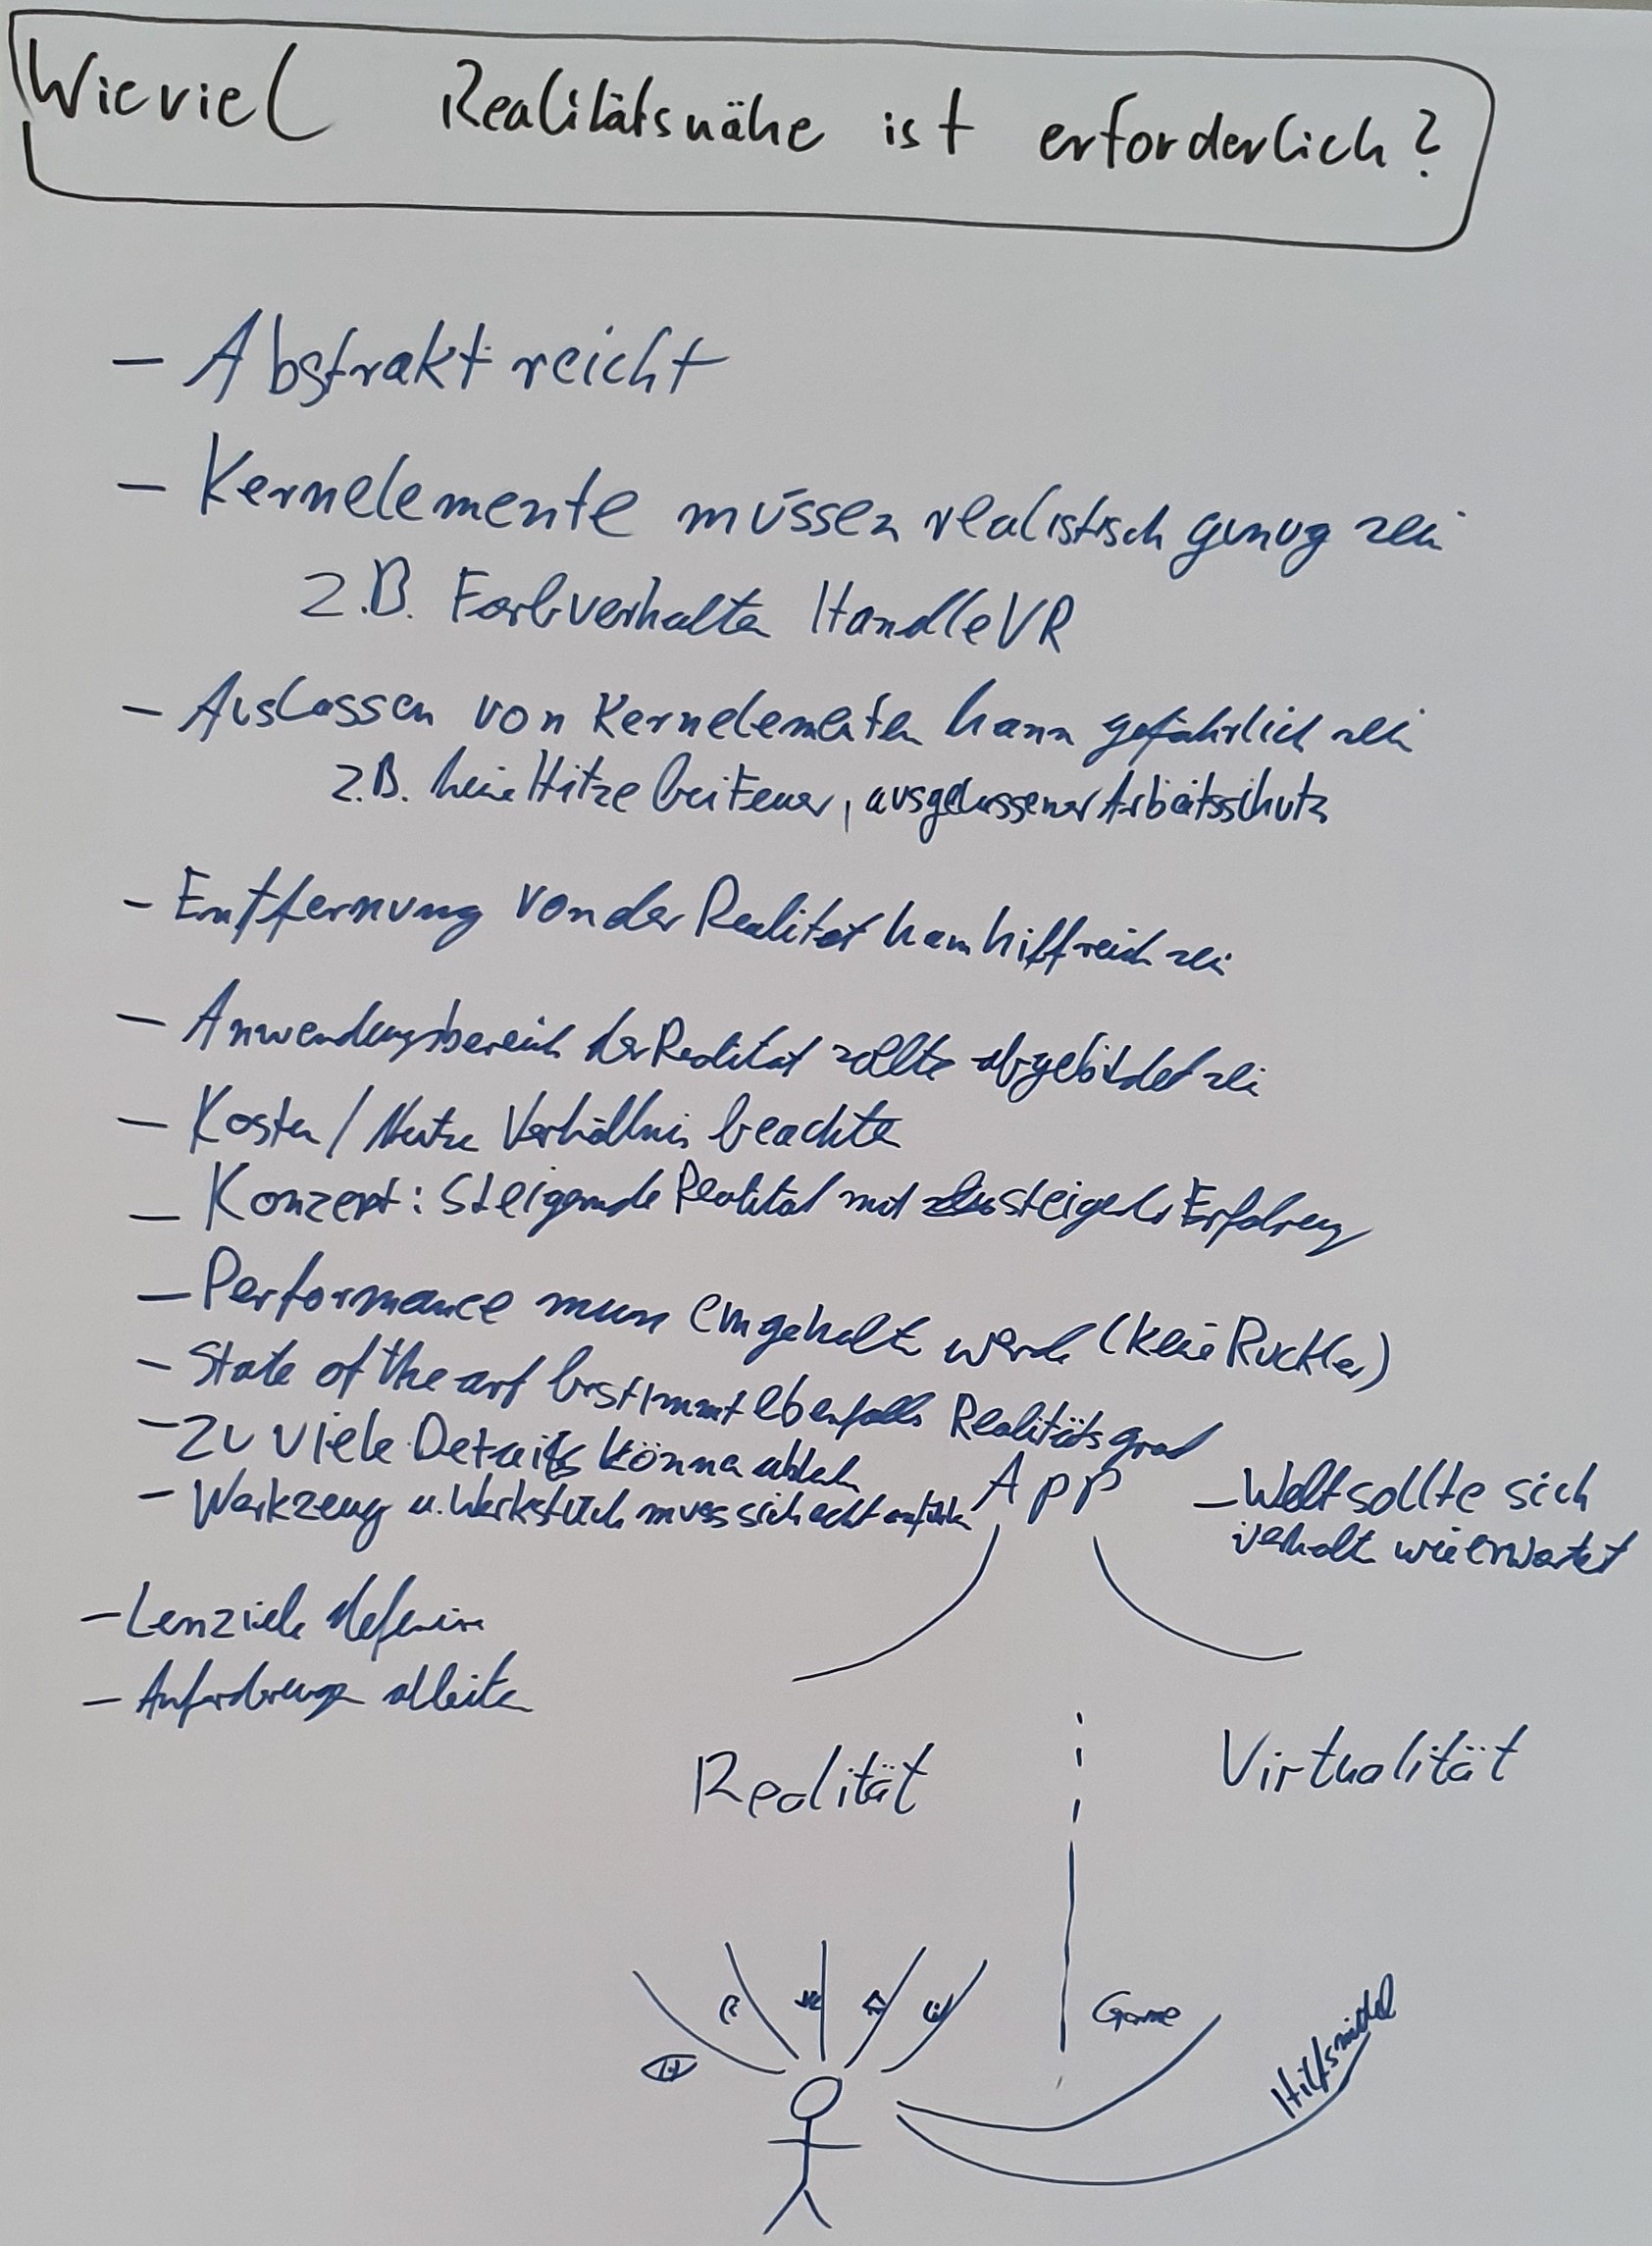 Wieviel Realitätsnähe ist erforderlich?
- Abstrakt reicht
- Kernelemente müssen realistisch genug sein
z.B. Farbverhalten HandleVR
- Auslassen von Kernelementen kann gefährlich sein
z.B. keine Hitze bei Feuer, ausgelassener Arbeitsschutz
- Entfernung von der Realität kann hilfreich sein
- Anwendungsbereich der Realität sollte abgebildet sein
- Kosten / Nutzen Verhältnis beachten
- Konzept: Steigende Realität mit steigender Erfahrung
- Performance muss eingehalten werden (keine Ruckler)
- State of the art bestimmt ebenfalls Realitätsgrad
- Zu viele Details können ablenken
- Werkzeug u. Werkstück muss sich echt anfühlen
App
- Welt sollte sich
verhalten wie erwartet
- Lernziele definieren
- Anforderungen ableiten
Realität
Virtualität
Game
Hilfsmittel